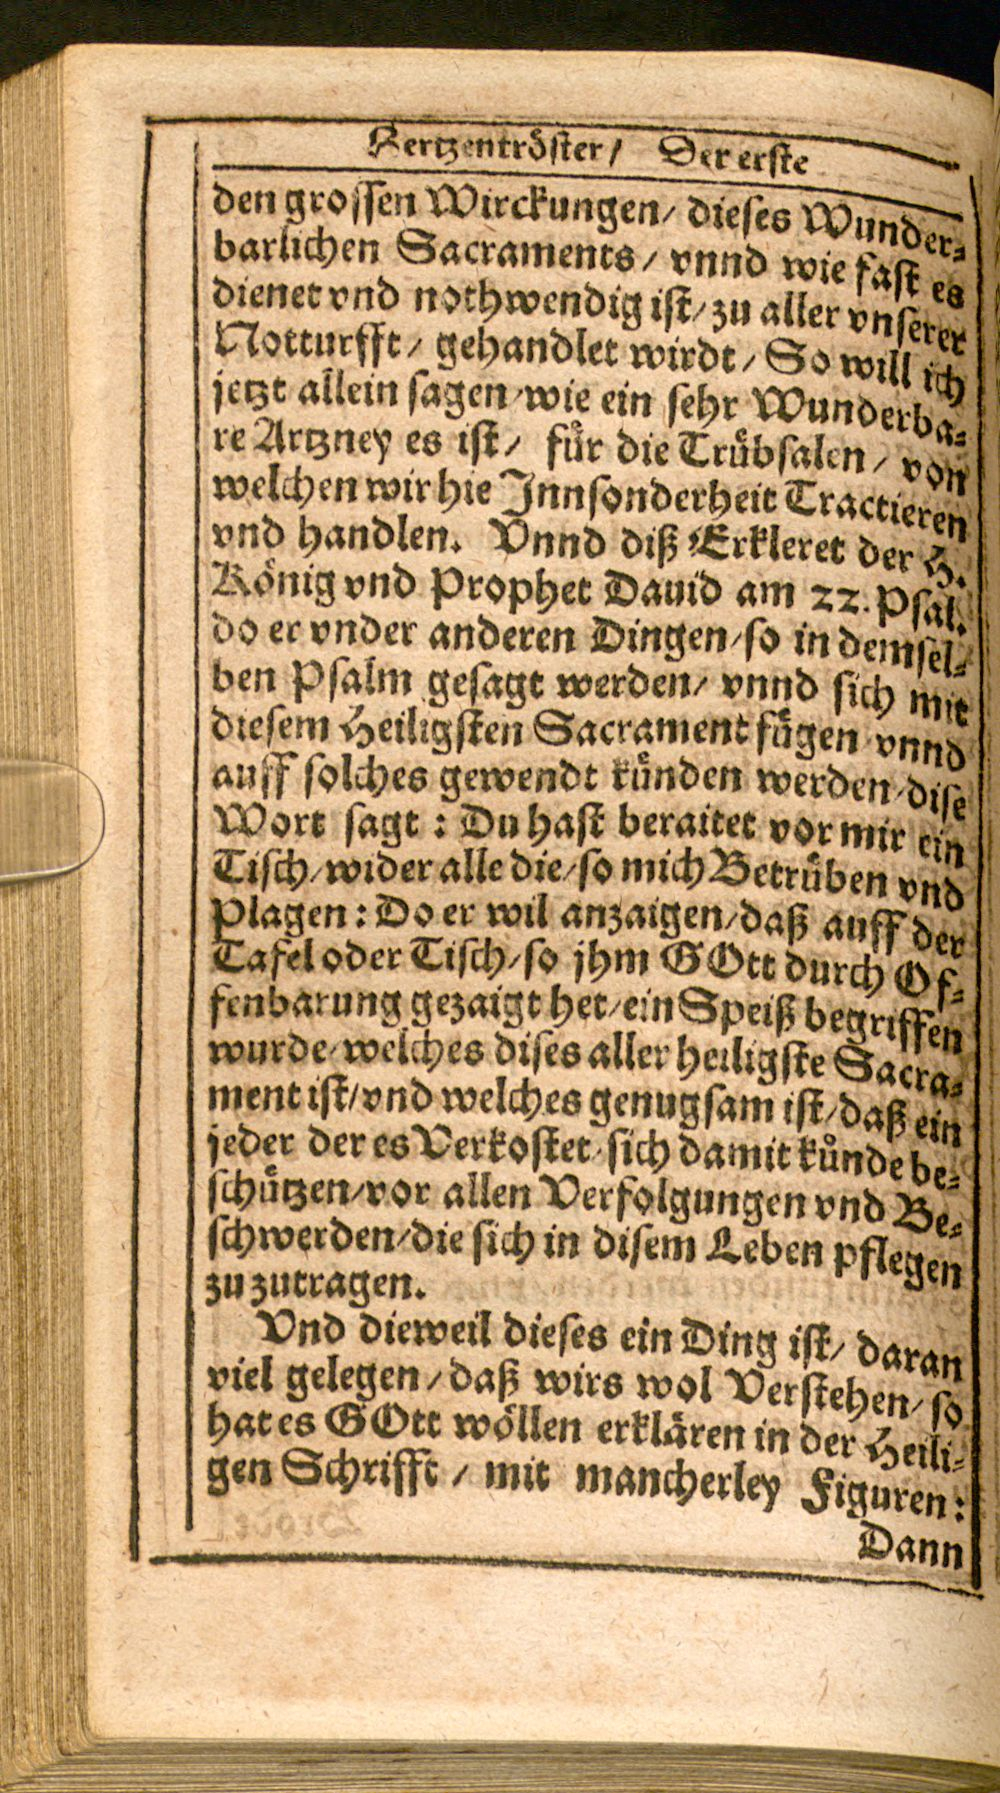 Hertzentröster / Der erste
den grossen Wirckungen / dieses Wunder-
barlichen Sacraments / vnnd wie fast es
dienet vnd nothwendig ist / zu aller vnserer
Notturfft / gehandlet wirdt / So will ich
jetzt allein sagen / wie ein sehr Wunderba-
re Artzney es ist / für die Trübsalen / von
welchen wir hie Jnnsonderheit Tractieren
vnd handlen. Vnnd diß Erkleret der H.
König vnd Prophet Dauid am 22. Psal.
do er vnder anderen Dingen / so in demsel-
ben Psalm gesagt werden / vnnd sich mit
diesem Heiligsten Sacrament fügen vnnd
auff solches gewendt künden werden / dise
Wort sagt : Du hast beraitet vor mir ein
Tisch / wider alle die / so mich Betrüben vnd
Plagen : Do er wil anzaigen / daß auff der
Tafel oder Tisch / so jhm GOtt durch Of-
fenbarung gezaigt het / ein Speiß begriffen
wurde / welches dises aller heiligste Sacra-
ment ist / vnd welches genugsam ist / daß ein
jeder der es Verkostet / sich damit künde be-
schützen / vor allen Verfolgungen vnd Be-
schwerden / die sich in disem Leben pflegen
zu zutragen.
Vnd dieweil dieses ein Ding ist / daran
viel gelegen / daß wirs wol Verstehen / so
hat es GOtt wöllen erklären in der Heili-
gen Schrifft / mit mancherley Figuren :
Dann